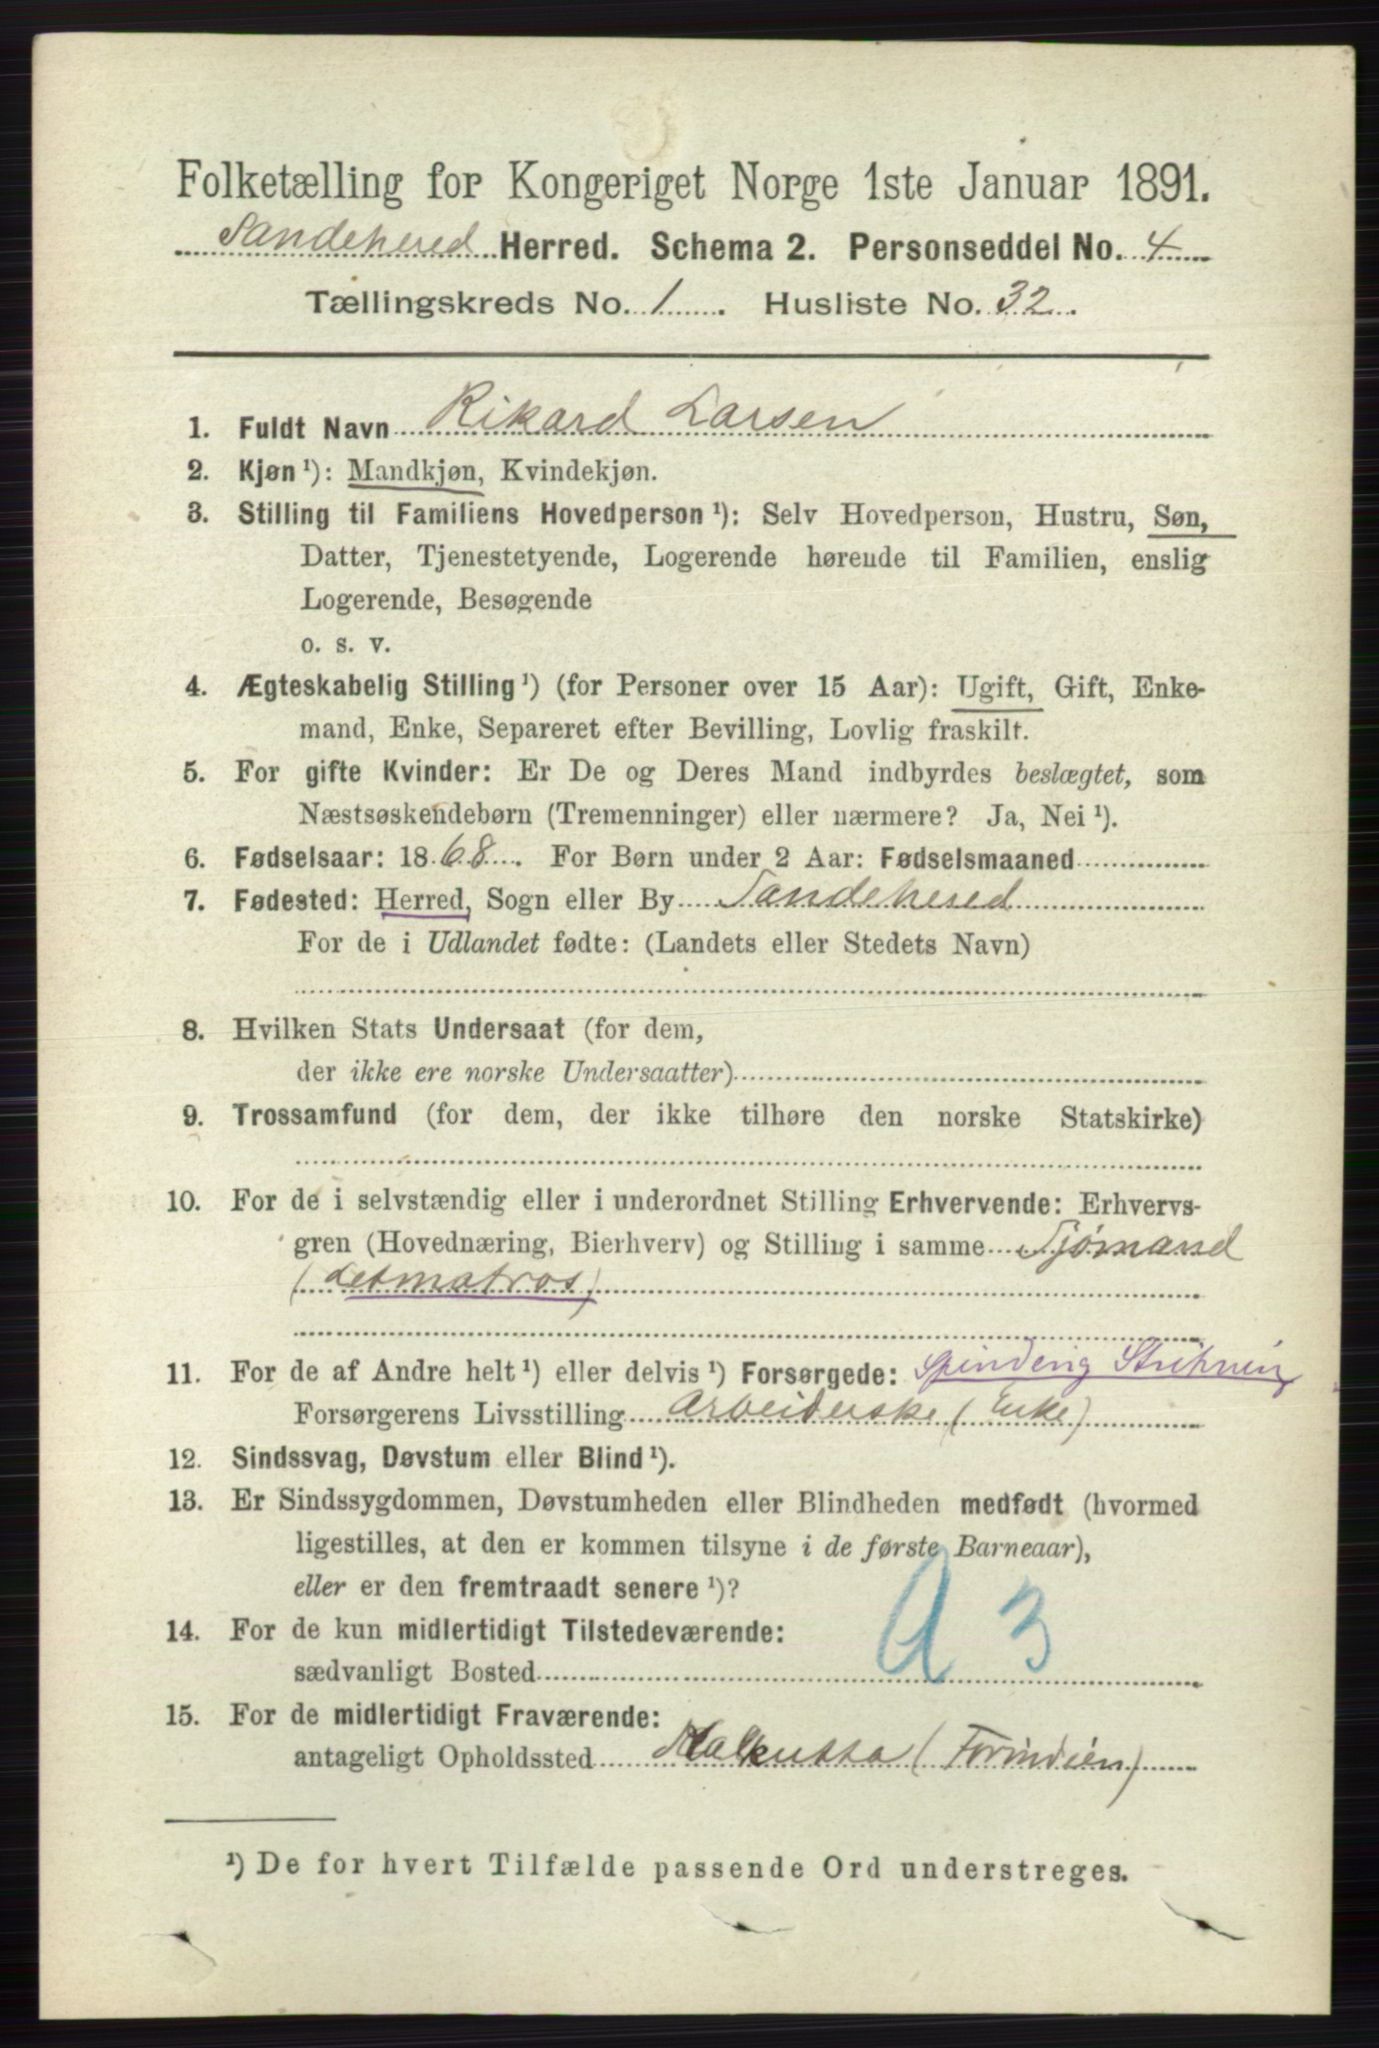 Folketælling for Kongeriget Norge 1ste Januar 1891.
Sandehered Herred. Schema 2. Personseddel No. 4
Tællingskreds No. 1. Husliste No. 32.
1. Fuldt Navn Rikard Larsen
2. Kjøn ¹): Mandkjøn, Kvindekjøn.
3. Stilling til Familiens Hovedperson ¹): Selv Hovedperson, Hustru, Søn,
Datter, Tjenestetyende, Logerende hørende til Familien, enslig
Logerende, Besøgende
o. s. v.
4. Ægteskabelig Stilling ¹) (for Personer over 15 Aar): Ugift, Gift, Enke-
mand, Enke, Separeret efter Bevilling, Lovlig fraskilt.
5. For gifte Kvinder: Er De og Deres Mand indbyrdes beslægtet, som
Næstsøskendebørn (Tremenninger) eller nærmere? Ja, Nei ¹).
6. Fødselsaar: 1868. For Børn under 2 Aar: Fødselsmaaned
7. Fødested: Herred, Sogn eller By Sandehered
For de i Udlandet fødte: (Landets eller Stedets Navn)
8. Hvilken Stats Undersaat (for dem,
der ikke ere norske Undersaatter)
9. Trossamfund (for dem, der ikke tilhøre den norske Statskirke)
10. For de i selvstændig eller i underordnet Stilling Erhvervende: Erhvervs-
gren (Hovednæring, Bierhverv) og Stilling i samme Sjømand
(Letmatros)
11. For de af Andre helt ¹) eller delvis ¹) Forsørgede: Spinding
Forsørgerens Livsstilling Arbeiderske (Enke)
12. Sindssvag, Døvstum eller Blind ¹).
13. Er Sindssygdommen, Døvstumheden eller Blindheden medfødt (hvormed
ligestilles, at den er kommen tilsyne i de første Barneaar),
eller er den fremtraadt senere ¹)?
A 3
14. For de kun midlertidigt Tilstedeværende:
sædvanligt Bosted
15. For de midlertidigt Fraværende:
antageligt Opholdssted Kalkutta (Forindien)
¹) De for hvert Tilfælde passende Ord understreges.